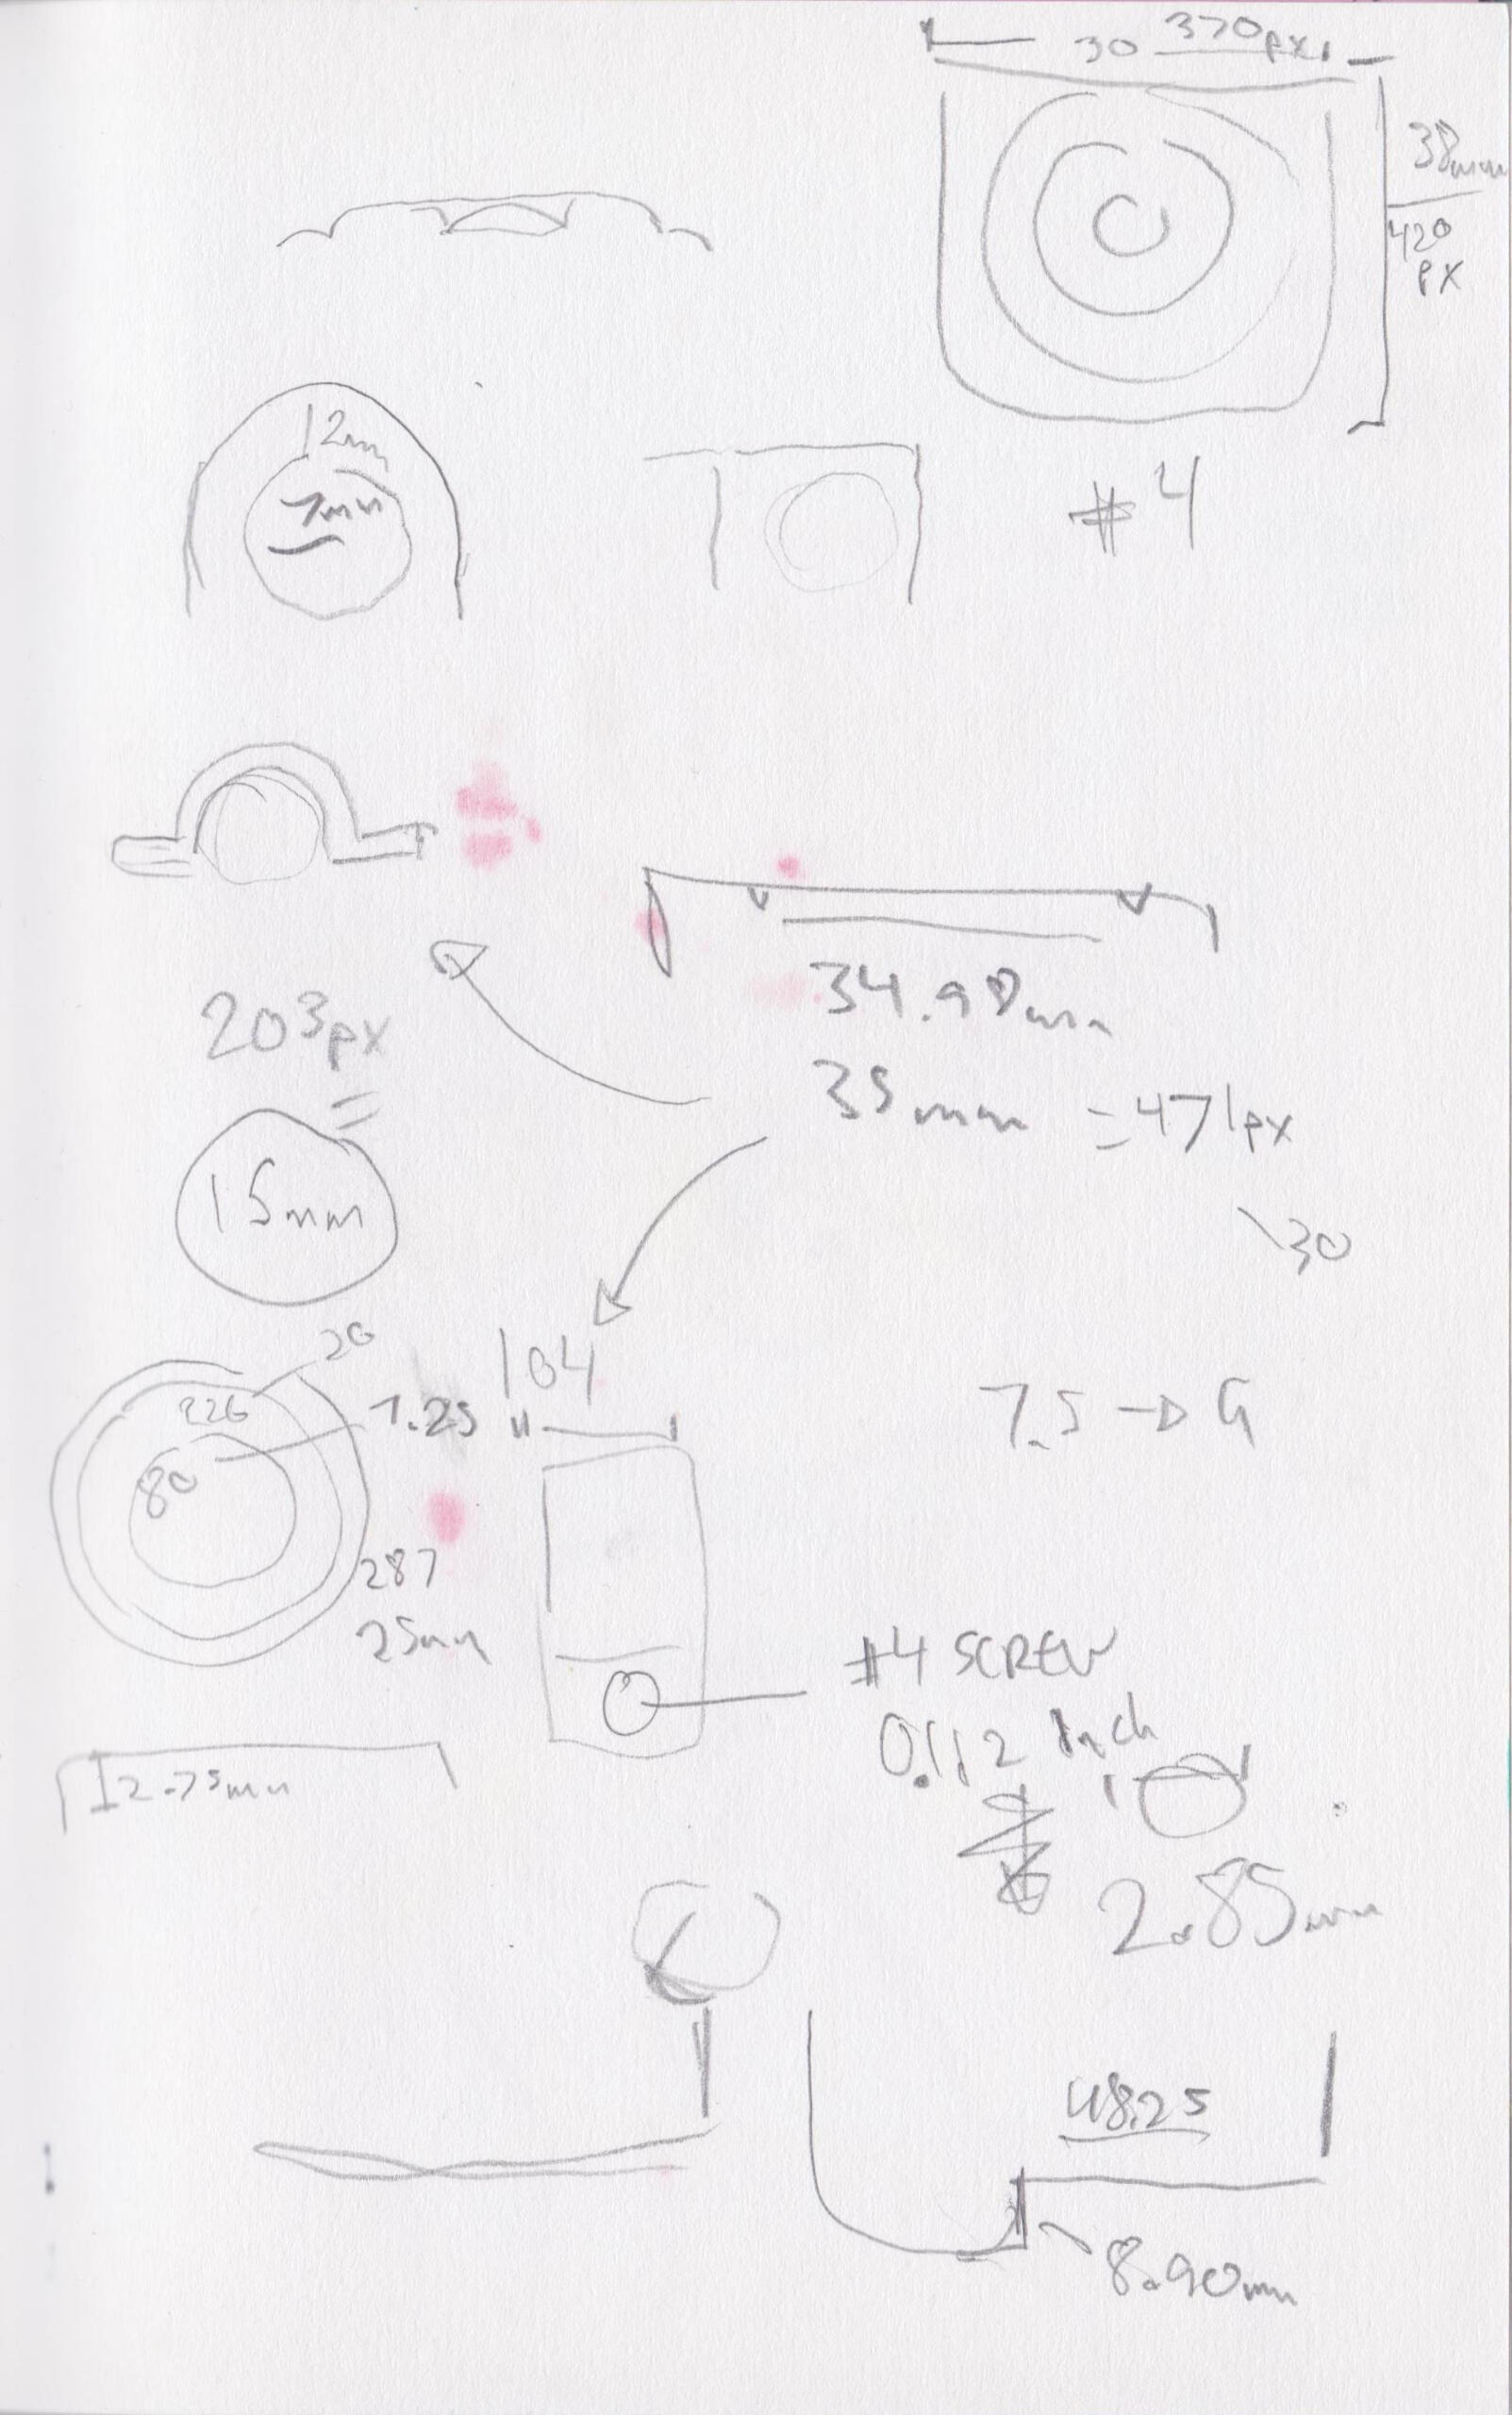 30 370px
38mm
420
px
12m
7mm
#4
34.98mm
203px
=
35mm = 471px
15mm
30
20
104
226
7.25
7.5 → G
80
287
25mm
#4 SCREW
0.112 Inch
12.75mm
2.85mm
48.25
8.90mm